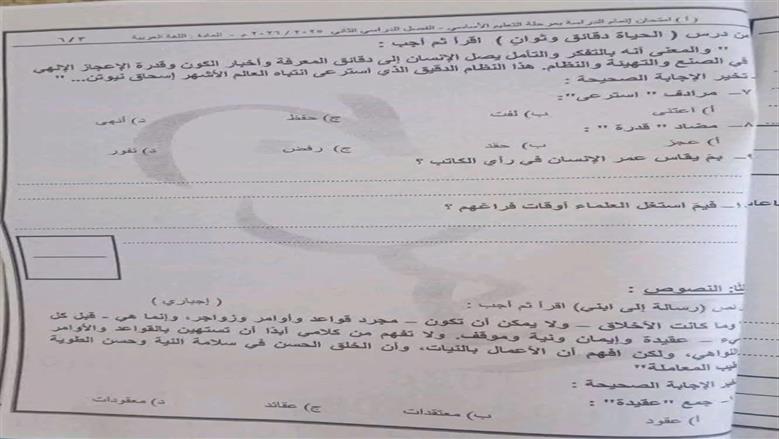 ( أ ) امتحان إتمام الدراسة بمرحلة التعليم الأساسي - الفصل الدراسي الثاني ٢٠٢٥ / ٢٠٢٦ م - المادة : اللغة العربية ٦/٣
من درس ( الحياة دقائق وثوانٍ ) اقرأ ثم أجب :
" والمعنى أنه بالتفكر والتأمل يصل الإنسان إلى دقائق المعرفة وأخبار الكون وقدرة الإعجاز الإلهي
في الصنع والتهيئة والنظام. هذا النظام الدقيق الذي استرعى انتباه العالم الأشهر إسحاق نيوتن... "
تخير الإجابة الصحيحة :
٧ـ مرادف " استرعى " :
أ) اعتنى ب) لفت ج) حفظ د) أنهى
٨ـ مضاد " قدرة " :
أ) عجز ب) حقد ج) رفض د) نفور
٩ـ بمَ يقاس عمر الإنسان في رأي الكاتب ؟
ـ فيمَ استغل العلماء أوقات فراغهم ؟
النصوص :
نص (رسالة إلى ابني) اقرأ ثم أجب : ( إجباري )
وما كانت الأخلاق – ولا يمكن أن تكون – مجرد قواعد وأوامر وزواجر، وإنما هي - قبل كل
شيء – عقيدة وإيمان ونية وموقف. ولا تفهم من كلامي أبدًا أن تستهين بالقواعد والأوامر
والنواهي، ولكن افهم أن الأعمال بالنيات، وأن الخلق الحسن في سلامة النية وحسن الطوية
وطيب المعاملة"
تخير الإجابة الصحيحة :
١- جمع "عقيدة" :
أ) عقود ب) معتقدات ج) عقائد د) معقودات